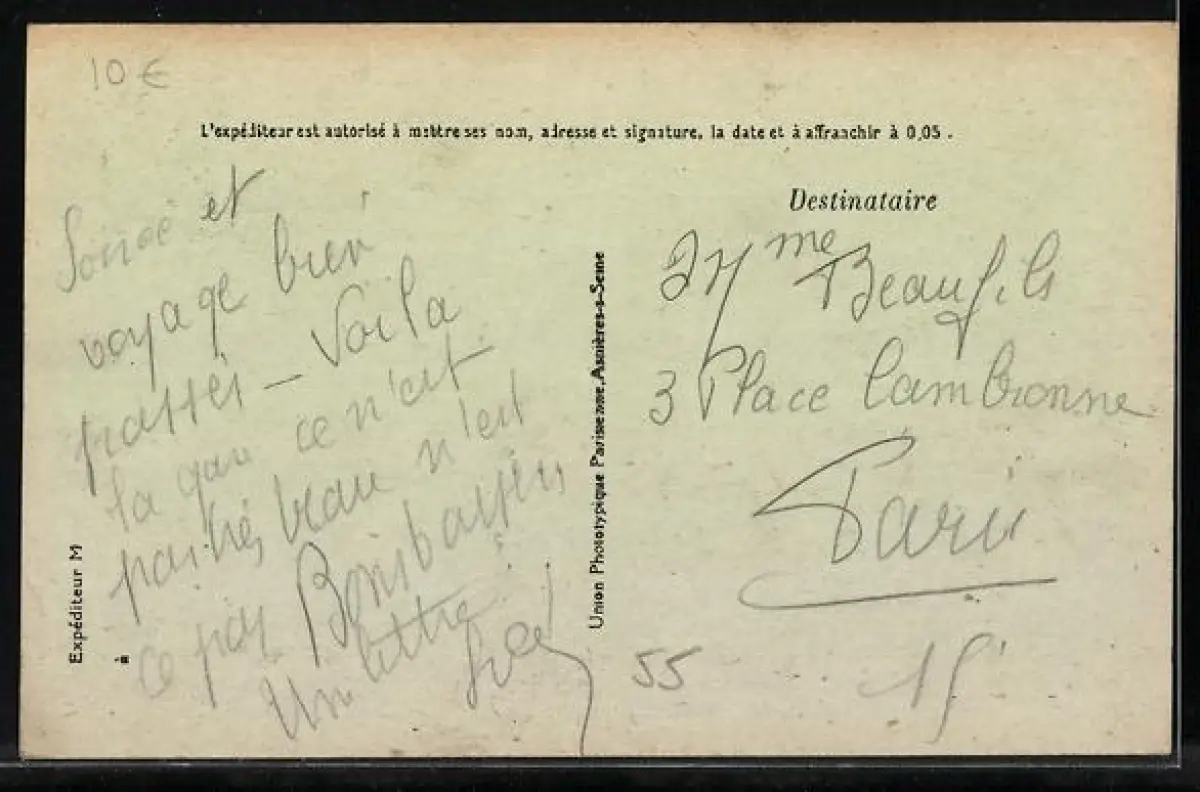 10 €
L'expéditeur est autorisé à mettre ses nom, adresse et signature, la date et à affranchir à 0,05.
Destinataire
et
voyage bien
passés — Voila
la que ce n'est
pas très beau n'est
ce pas Bons baisers
Un lettre
Mme Beaufils
3 Place Cambronne
Paris
15
55
Union Phototypique Parisienne, Asnières-s-Seine
Expéditeur M
à